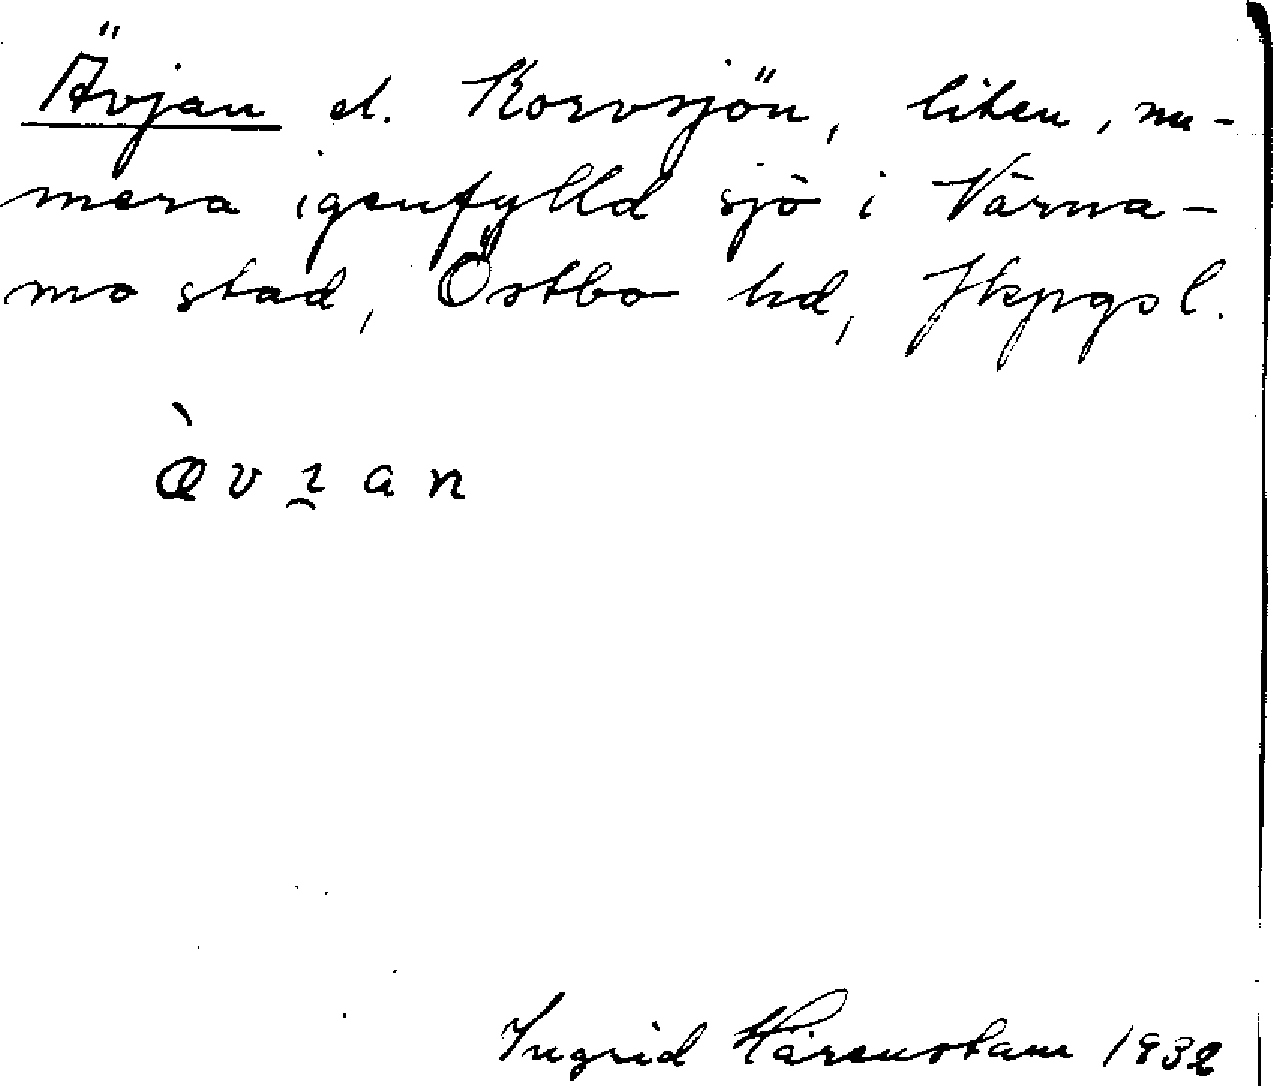 Ävjan el. Korvsjön, liten, nu-
mera igenfylld sjö i Värna-
mo stad, Östbo hd, Jkpgs l.
æ̀vı̯an
Ingrid Härenstam 1932